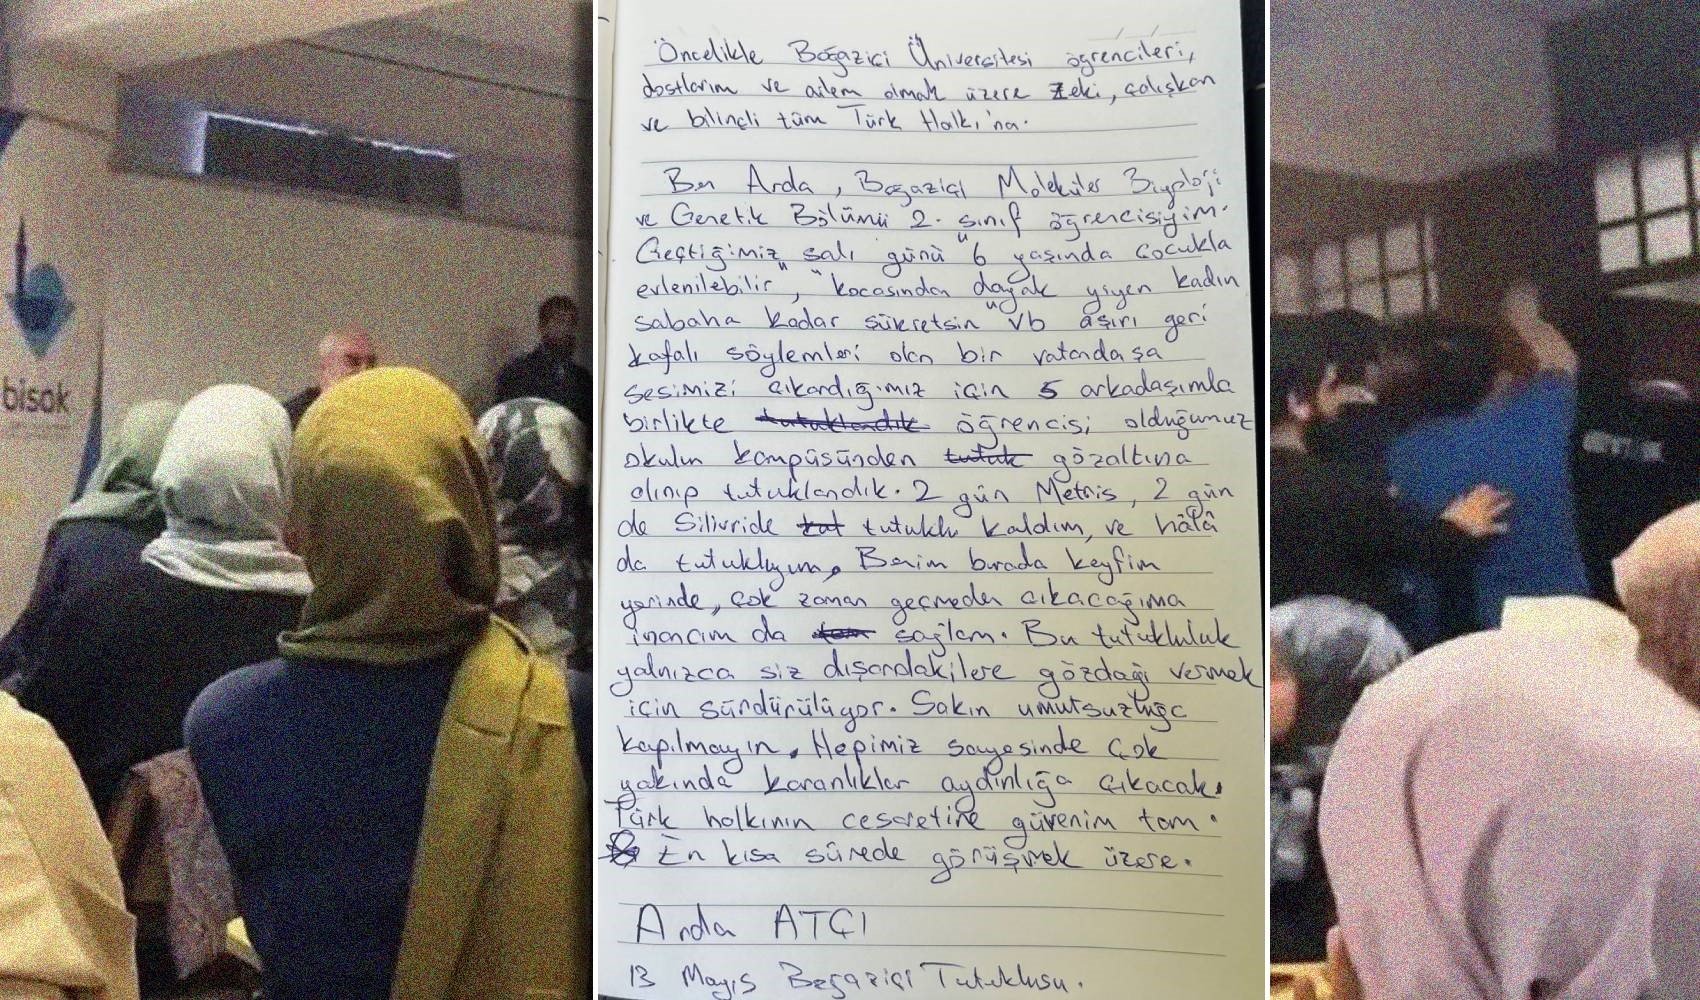 bisak
Öncelikle Boğaziçi Üniversitesi öğrencileri,
dostlarım ve ailem olmak üzere zeki, çalışkan
ve bilinçli tüm Türk Halkı'na.
Ben Arda, Boğaziçi Moleküler Biyoloji
ve Genetik Bölümü 2. sınıf öğrencisiyim.
Geçtiğimiz salı günü "6 yaşında çocukla
evlenilebilir", "kocasından dayak yiyen kadın
sabaha kadar şükretsin" vb aşırı geri
kafalı söylemleri olan bir vatandaşa
sesimizi çıkardığımız için 5 arkadaşımla
birlikte tutuklandık öğrencisi olduğumuz
okulun kampüsünden tutuk gözaltına
alınıp tutuklandık. 2 gün Metris, 2 gün
de Silivride tut tutuklu kaldım, ve hâlâ
da tutukluyum. Benim burada keyfim
yerinde, çok zaman geçmeden çıkacağıma
inancım da tam sağlam. Bu tutukluluk
yalnızca siz dışardakilere gözdağı vermek
için sürdürülüyor. Sakın umutsuzluğa
kapılmayın. Hepimiz sayesinde çok
yakında karanlıklar aydınlığa çıkacak.
Türk halkının cesaretine güvenim tam.
En kısa sürede görüşmek üzere.
Arda ATÇI
13 Mayıs Boğaziçi Tutuklusu.